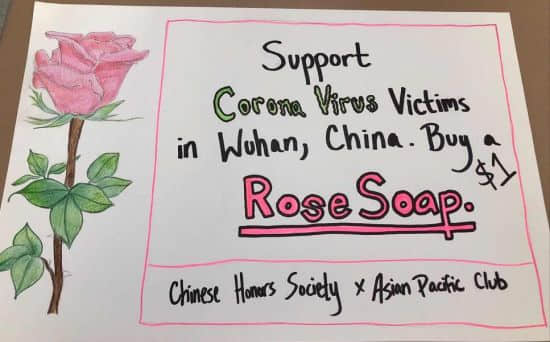 Support
Corona Virus Victims
in Wuhan, China. Buy a
$1
Rose Soap.
Chinese Honors Society x Asian Pacific Club